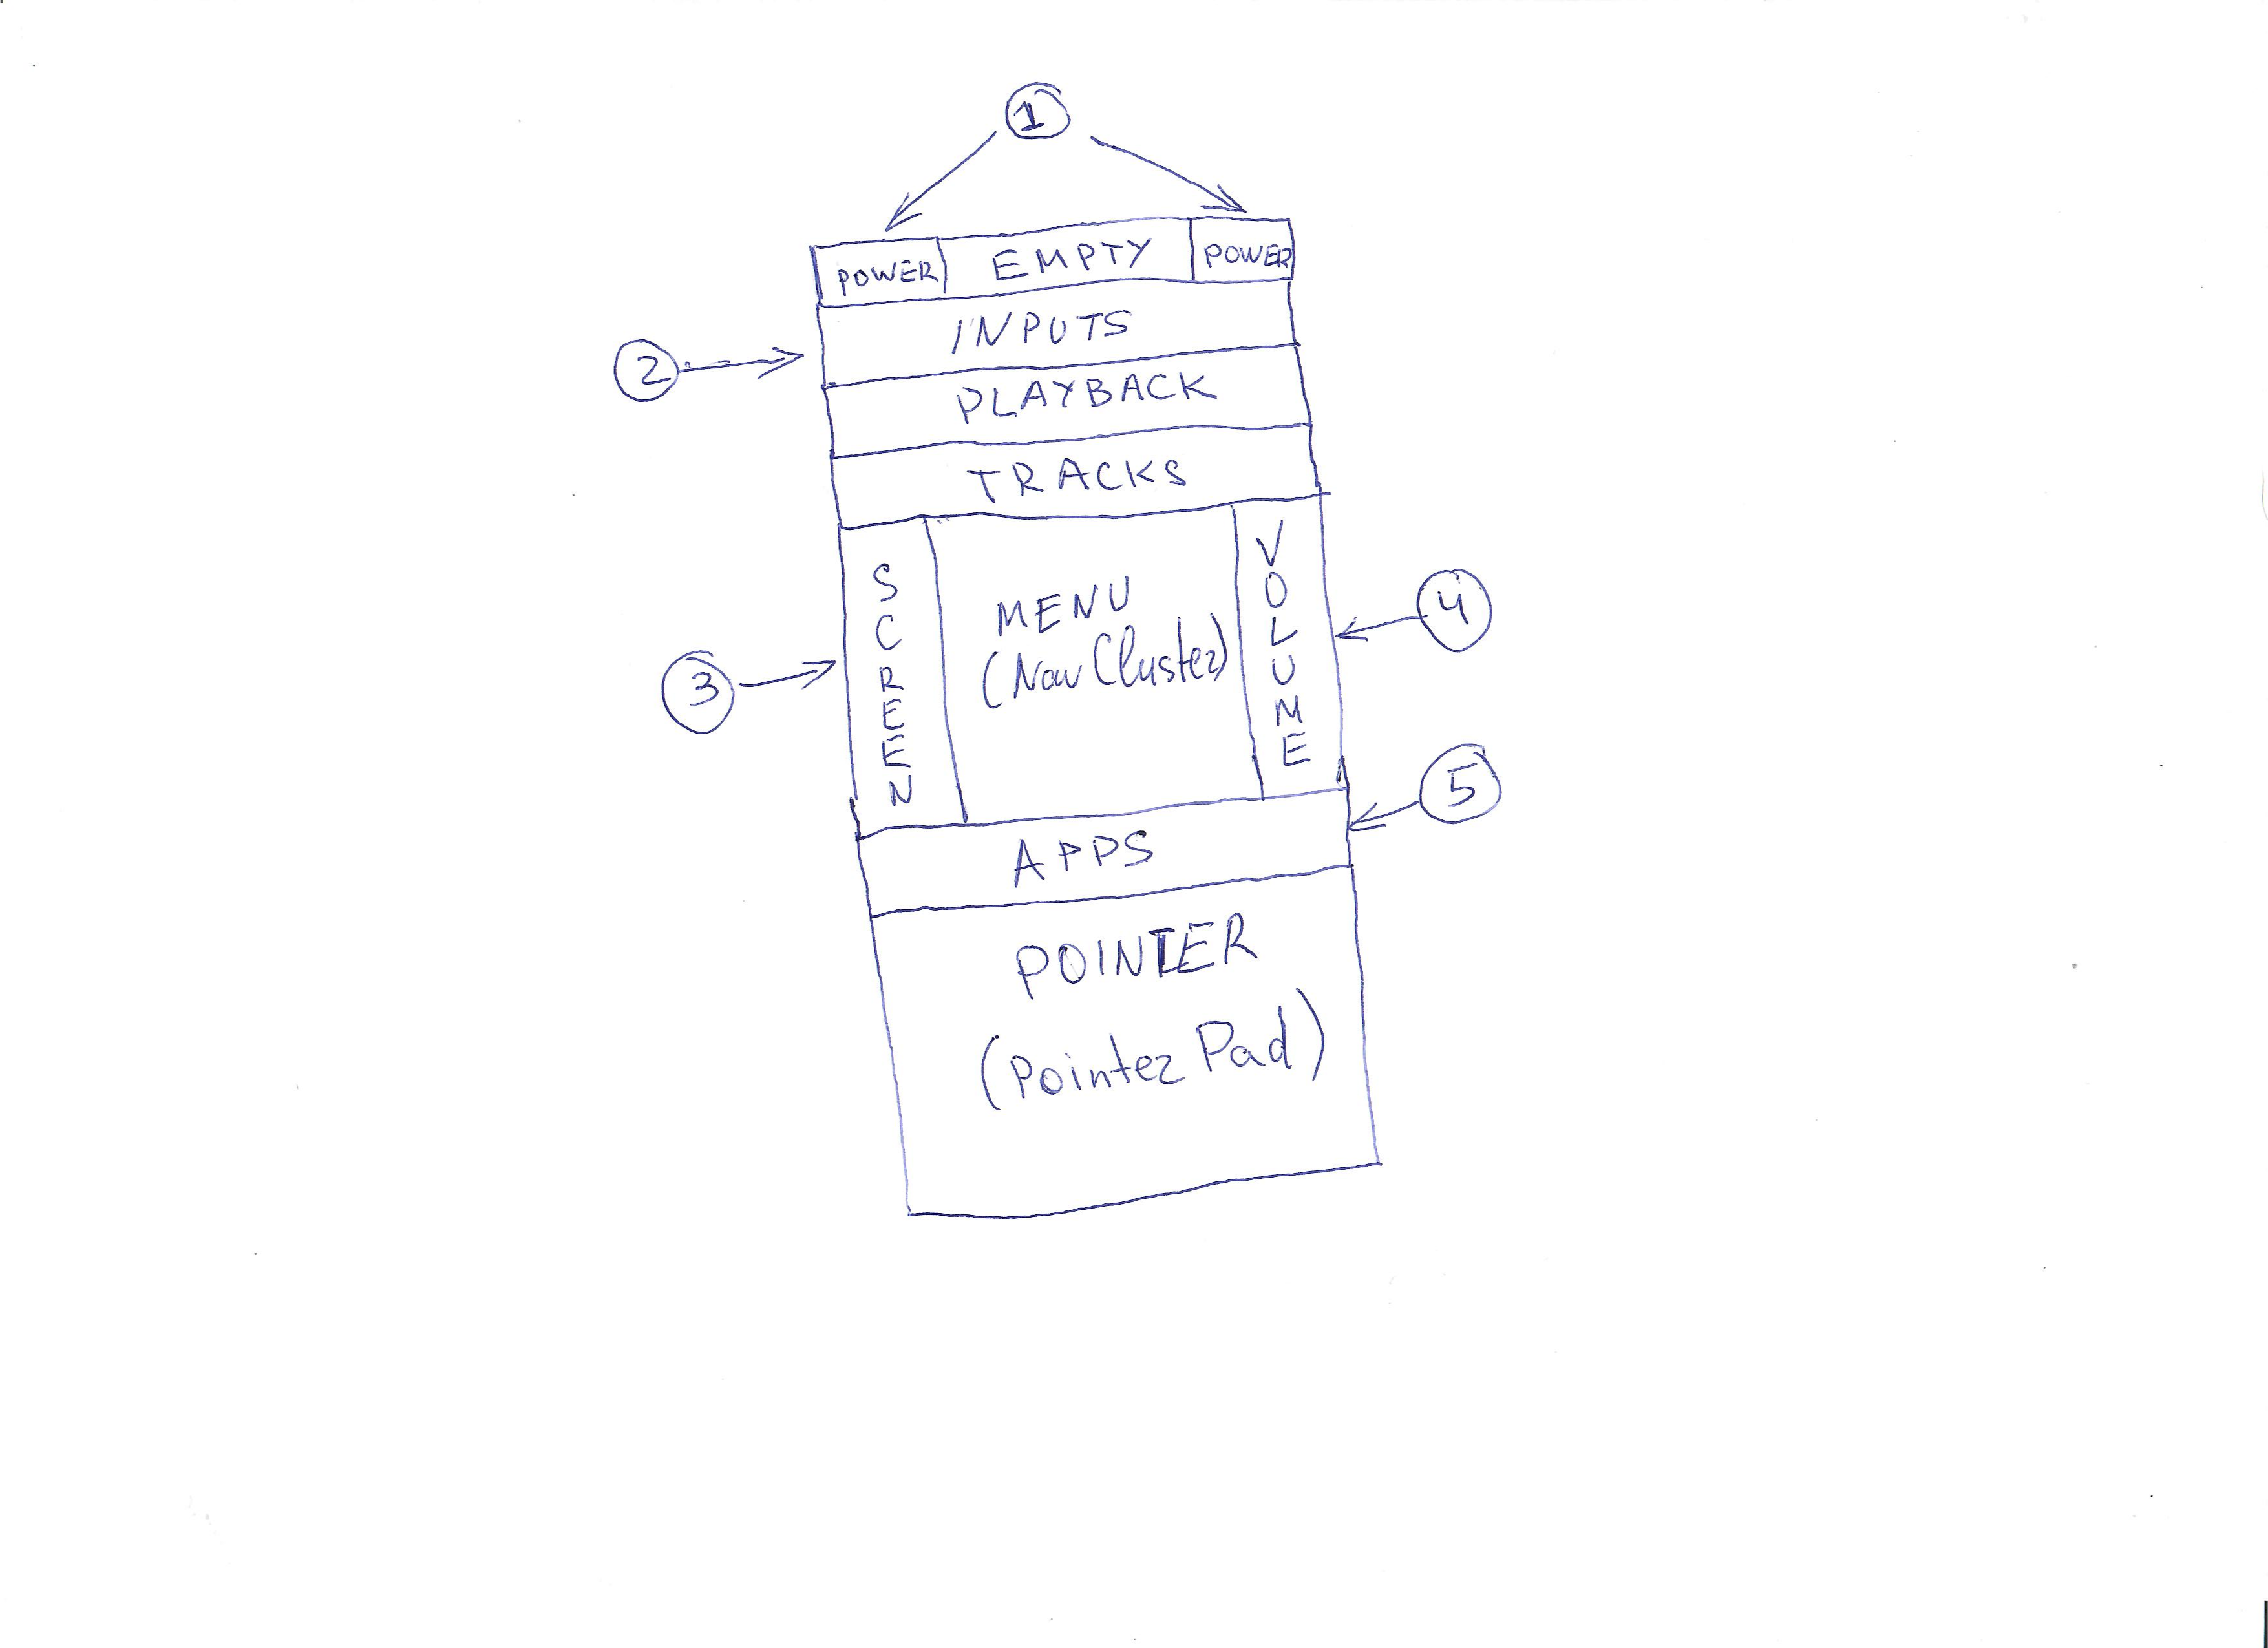 1
POWER EMPTY POWER
INPUTS
2
PLAYBACK
TRACKS
SCREEN
MENU
(Nav Cluster)
VOLUME
4
3
5
APPS
POINTER
(Pointer Pad)